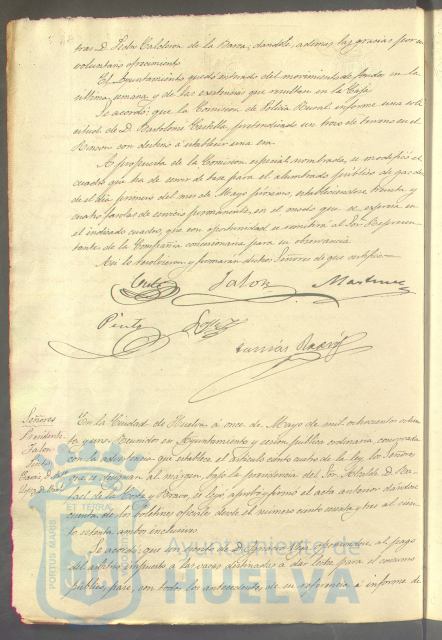 tras D. Pedro Calderon de la Barca; dandole, ademas las gracias por su
voluntario ofrecimiento.
El Ayuntamiento quedó enterado del movimiento de fondos en la
última semana y de las existencias que resultan en la Caja.
Se acordó: que la Comision de Policía Rural informe una soli
citud de D. Bartolomé Castilla, pretendiendo un trozo de terreno en el
con destino á establecer una era.
A propuesta de la Comision especial nombrada, se modificó el
cuadro que ha de servir de base para el alumbrado público de gas des
de el dia primero del mes de Mayo próximo, estableciendose treinta y
cuatro farolas de servicio permanente, en el modo que se expresa en
el indicado cuadro, que con oportunidad se remitirá al Sor. Represen
tante de la Compañía concesionaria para su observancia.
Así lo resolvieron y firmarán dichos Señores de que certifico=
Jalon Martinez
Pinto Lopez
Señores
Presidente
Jalon
Pinto
En la Ciudad de Huelva á once de Mayo de mil ochocientos ochen
ta y uno: Reunidos en Ayuntamiento y sesion pública ordinaria, convocada
con la advertencia que establece el artículo ciento cuatro de la ley, los Señores
que se designan al márgen, bajo la presidencia del Sor. Alcalde D. Ra-
fael de la Corte y Bravo, se leyó aprobó y firmó el acta anterior dándose
cuenta de los boletines oficiales desde el número ciento sesenta y tres al cien
to setenta ambos inclusives.
Se acordó: que un escrito de D. Ignacio oponiendose al pago
del arbitrio impuesto á las vacas destinadas á dar leche para el consumo
público, pase, con todos los antecedentes de su referencia á informe de
PORTUS MARIS
ET TERRAE
Ayuntamiento de
HUELVA